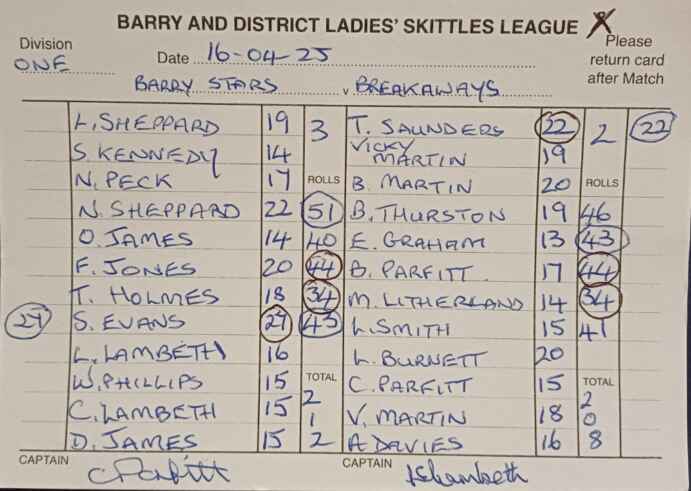 BARRY AND DISTRICT LADIES' SKITTLES LEAGUE X
Division ONE
Date 16-04-25
Please return card after Match
BARRY STARS v BREAKAWAYS
L. SHEPPARD 19 3 T. SAUNDERS 22 2 22
S. KENNEDY 14 VICKY MARTIN 19
N. PECK 17 ROLLS B. MARTIN 20 ROLLS
N. SHEPPARD 22 51 B. THURSTON 19 46
O. JAMES 14 40 E. GRAHAM 13 43
F. JONES 20 44 B. PARFITT 17 44
T. HOLMES 18 34 M. LITHERLAND 14 34
27 S. EVANS 27 43 L. SMITH 15 41
L. LAMBETH 16 L. BURNETT 20
W. PHILLIPS 15 TOTAL C. PARFITT 15 TOTAL
C. LAMBETH 15 2 1 V. MARTIN 18 2 0
D. JAMES 15 2 A DAVIES 16 8
CAPTAIN C Parfitt CAPTAIN